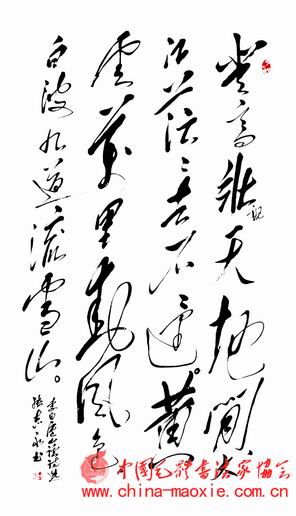 登高壯觀天地間大
江茫〻去不還黄
雲萬里動風色
白波九道流雪山。
李白廬山謠詩
書
中国毛体书法家协会
www.china-maoxie.com.cn